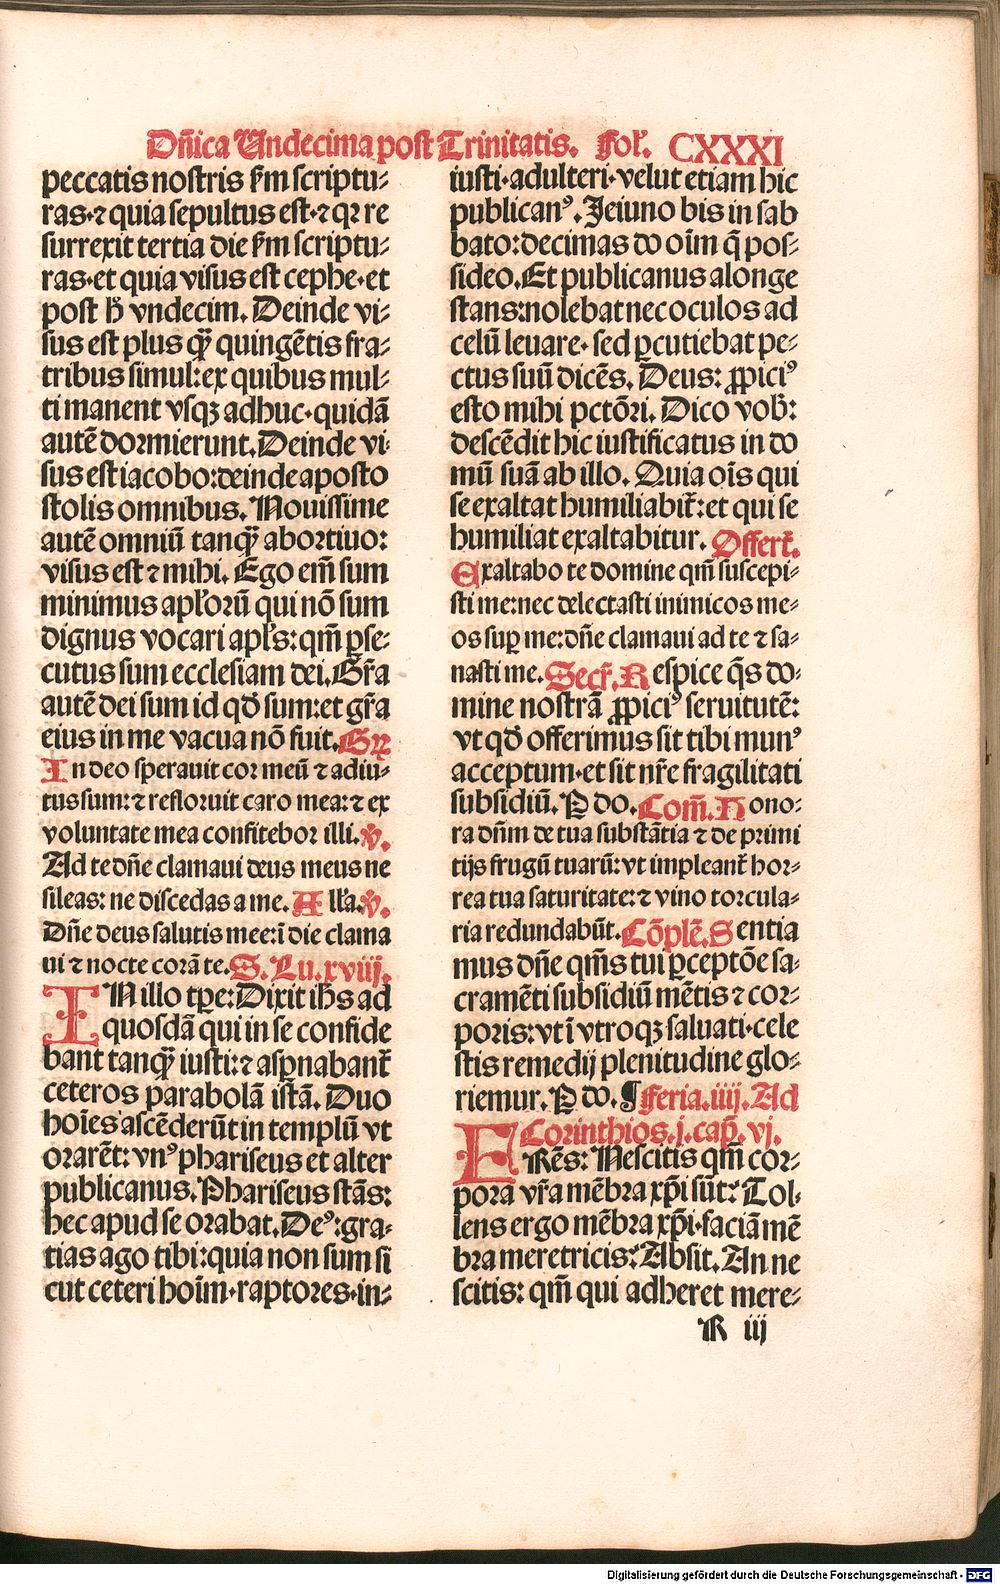 Dñica Undecima post Trinitatis. Fol. CXXXI
peccatis nostris sm scriptu⸗
ras·⁊ quia sepultus est·⁊ qꝛ re
surrexit tertia die sm scriptu⸗
ras·et quia visus est cephe·et
post h̄ vndecim. Deinde vi⸗
sus est plus qȝ̃ quingẽtis fra⸗
tribus simul:ex quibus mul⸗
ti manent vsqȝ adhuc·quidã
autẽ dormierunt. Deinde vi⸗
sus est iacobo:deinde aposto
stolis omnibus. Nouissime
autẽ omniũ tanqȝ̃ abortiuo:
visus est ⁊ mihi. Ego em̃ sum
minimus apl'orũ qui nõ sum
dignus vocari apl's: qm̃ ꝑse⸗
cutus sum ecclesiam dei. Gr̃a
autẽ dei sum id qd' sum:et gr̃a
eius in me vacua nõ fuit. Gꝛ
In deo sperauit cor meũ ⁊ adiu⸗
tus sum: ⁊ refloruit caro mea: ⁊ ex
voluntate mea confitebor illi. ℣.
Ad te dñe clamaui deus meus ne
sileas: ne discedas a me. All'a. ℣.
Dñe deus salutis mee: ĩ die clama
ui ⁊ nocte corã te. S. Lu. xviij.
IN illo tꝑe: Dixit ih̃s ad
quosdã qui in se confide
bant tanqȝ̃ iusti: ⁊ aspnabant̃
ceteros parabolã istã. Duo
hoĩes ascẽderũt in templũ vt
orarẽt: vnꝰ phariseus et alter
publicanus. Phariseus stãs:
hec apud se orabat. Deꝰ: gra⸗
tias ago tibi: quia non sum si
cut ceteri hoĩm·raptores·in⸗
iusti·adulteri·velut etiam hic
publicanꝰ. Jeiuno bis in sab
bato: decimas do oĩm q̃ pos⸗
sideo. Et publicanus alonge
stans: nolebat nec oculos ad
celũ leuare· sed ꝑcutiebat pe⸗
ctus suũ dicẽs. Deus: ꝓpiciꝰ
esto mihi pctõri. Dico vob̃:
descẽdit hic iustificatus in do
mũ suã ab illo. Quia oĩs qui
se exaltat humiliabit̃: et qui se
humiliat exaltabitur. Offert̃.
Exaltabo te domine qm̃ suscepi⸗
sti me: nec delectasti inimicos me⸗
os sup me: dñe clamaui ad te ⁊ sa⸗
nasti me. Secr̃. Respice q̃s do⸗
mine nostrã ꝓpiciꝰ seruitutẽ:
vt qd' offerimus sit tibi munꝰ
acceptum·et sit nr̃e fragilitati
subsidiũ. P do. Com̃. Hono⸗
ra dñm de tua substãtia ⁊ de primi
tijs frugũ tuarũ: vt impleant̃ hor⸗
rea tua saturitate: ⁊ vino torcula⸗
ria redundabũt. Cõplẽ. Sentia
mus dñe qm̃s tui ꝑceptõe sa⸗
cramẽti subsidiũ mẽtis ⁊ cor⸗
poris: vt ĩ vtroqȝ saluati·cele
stis remedij plenitudine glo⸗
riemur. P do. ¶ Feria. iiij. Ad
Corinthios. j. cap̃. vj.
FRẽs: Nescitis qm̃ cor⸗
pora vr̃a mẽbra xp̃i sũt: Tol⸗
lens ergo mẽbra xp̃i·faciã mẽ
bra meretricis: Absit. An ne
scitis: qm̃ qui adheret mere⸗
R iij
Digitalisierung gefördert durch die Deutsche Forschungsgemeinschaft - DFG